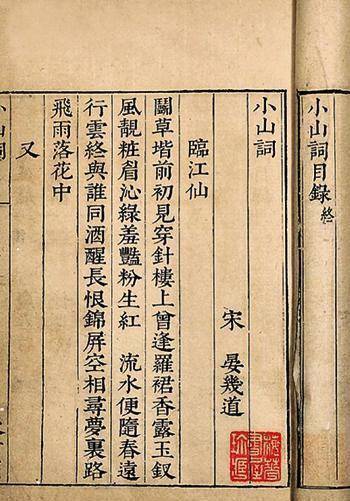 小山詞目錄 終
小山詞
宋 晏幾道
臨江仙
鬭草堦前初見穿針樓上曾逢羅裙香露玉釵
風靚粧眉沁綠羞豔粉生紅　流水便隨春遠
行雲終與誰同酒醒長恨錦屏空相尋夢裏路
飛雨落花中
又
小山詞